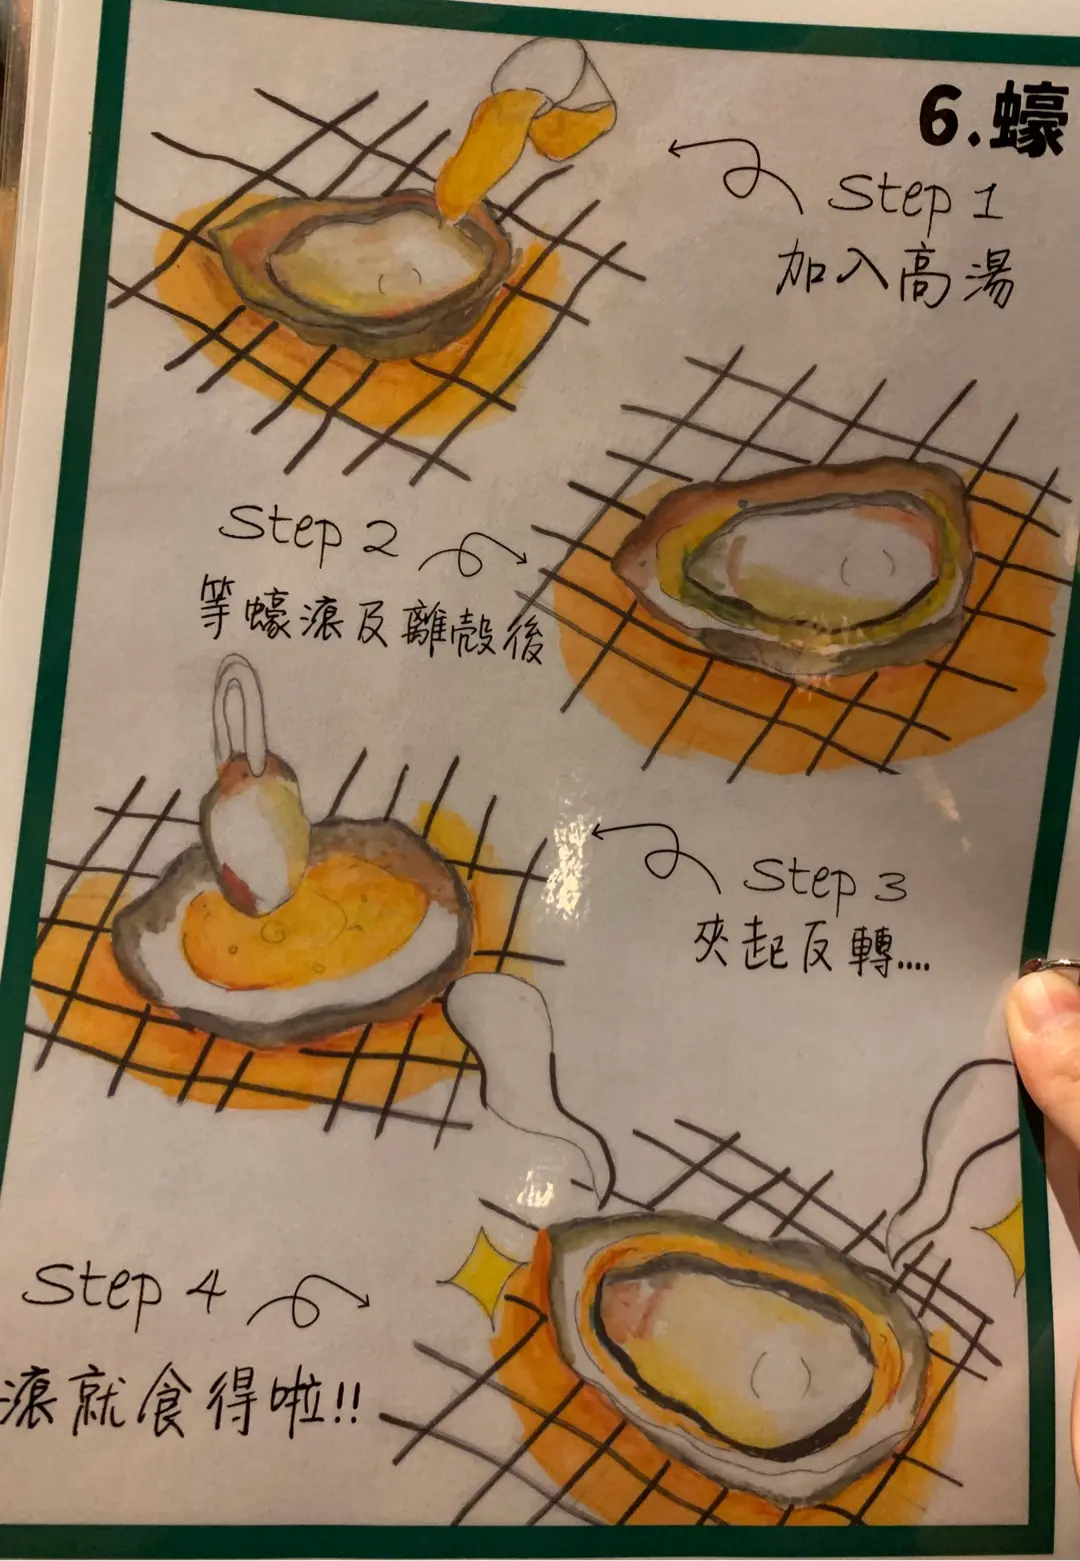 6.蠔
Step 1
加入高湯
Step 2
等蠔滾及離殼後
Step 3
夾起反轉....
Step 4
滾就食得啦!!